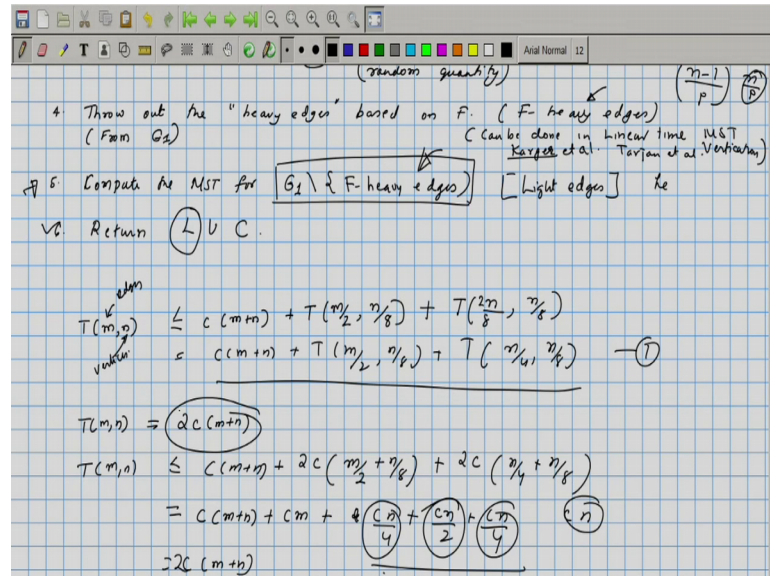 Arial Normal 12
(random quantity) (n-1/p) n/p
4. Throw out the "heavy edges" based on F. (F-heavy edges)
(From G1) (Can be done in Linear time MST Verification)
Karger et al. Tarjan et al.
5. Compute the MST for G1 \ { F-heavy edges) [Light edges] he
6. Return L ∪ C.
edges
T(m,n) ≤ c(m+n) + T(m/2, n/8) + T(2n/8, n/8)
vertices = c(m+n) + T(m/2, n/8) + T(n/4, n/8) - ①
T(m,n) = 2c(m+n)
T(m,n) ≤ c(m+n) + 2c(m/2 + n/8) + 2c(n/4 + n/8)
= c(m+n) + cm + cn/4 + cn/2 + cn/4 cn
=2c(m+n)